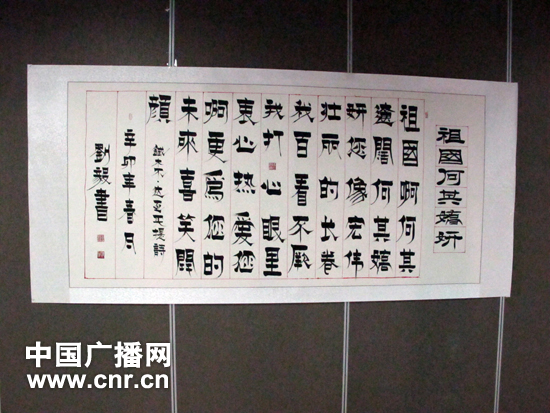 祖國何其嬌妍
祖國啊何其
遼闊何其嬌
妍您像宏伟
壮丽的长卷
我百看不厭
我打心眼里
衷心热愛您
啊更爲您的
未來喜笑開
顔
辛卯年春月
劉毅書
中国广播网
www.cnr.cn